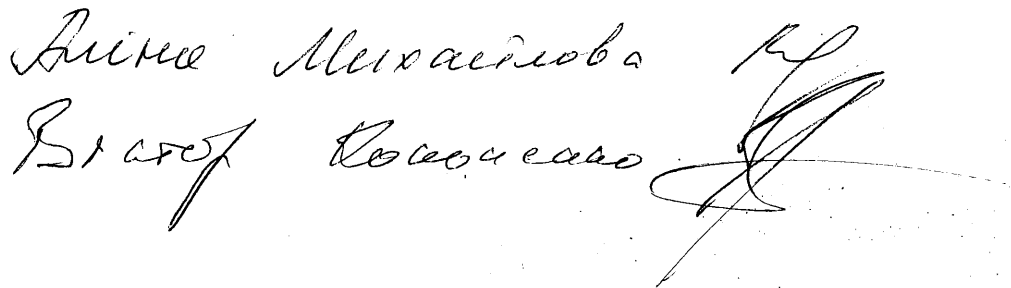 Аліна Михайлова
Віктор Кононенко